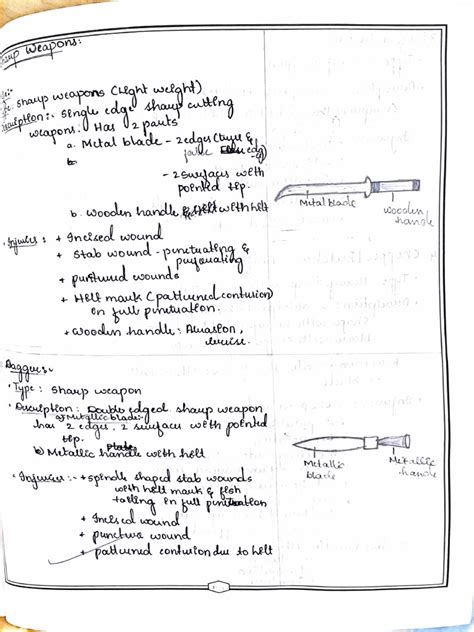 Sharp Weapons:
Type: Sharp weapons (Light weight)
Description:- Single edge sharp cutting
weapons. Has 2 parts
a. Metal blade - 2 edges (true &
false edge)
- 2 surfaces with
pointed tip.
b. Wooden handle with hilt
Metal blade
Wooden handle
Injuries : + Incised wound
+ Stab wound - punctuating &
perforating
+ punctured wounds
+ Hilt mark (patterned contusion)
on full penetration.
+ Wooden handle: Abrasion,
bruise.
Dagger:-
Type : Sharp weapon
Description: Double edged sharp weapon
a) Metallic blade:-
has 2 edges, 2 surfaces with pointed
tip.
b) Metallic handle with hilt
Metallic blade
Metallic handle
Injuries :- + spindle shaped stab wounds
with hilt mark & fish
tailing in full penetration
+ Incised wound
+ puncture wound
+ patterned contusion due to hilt